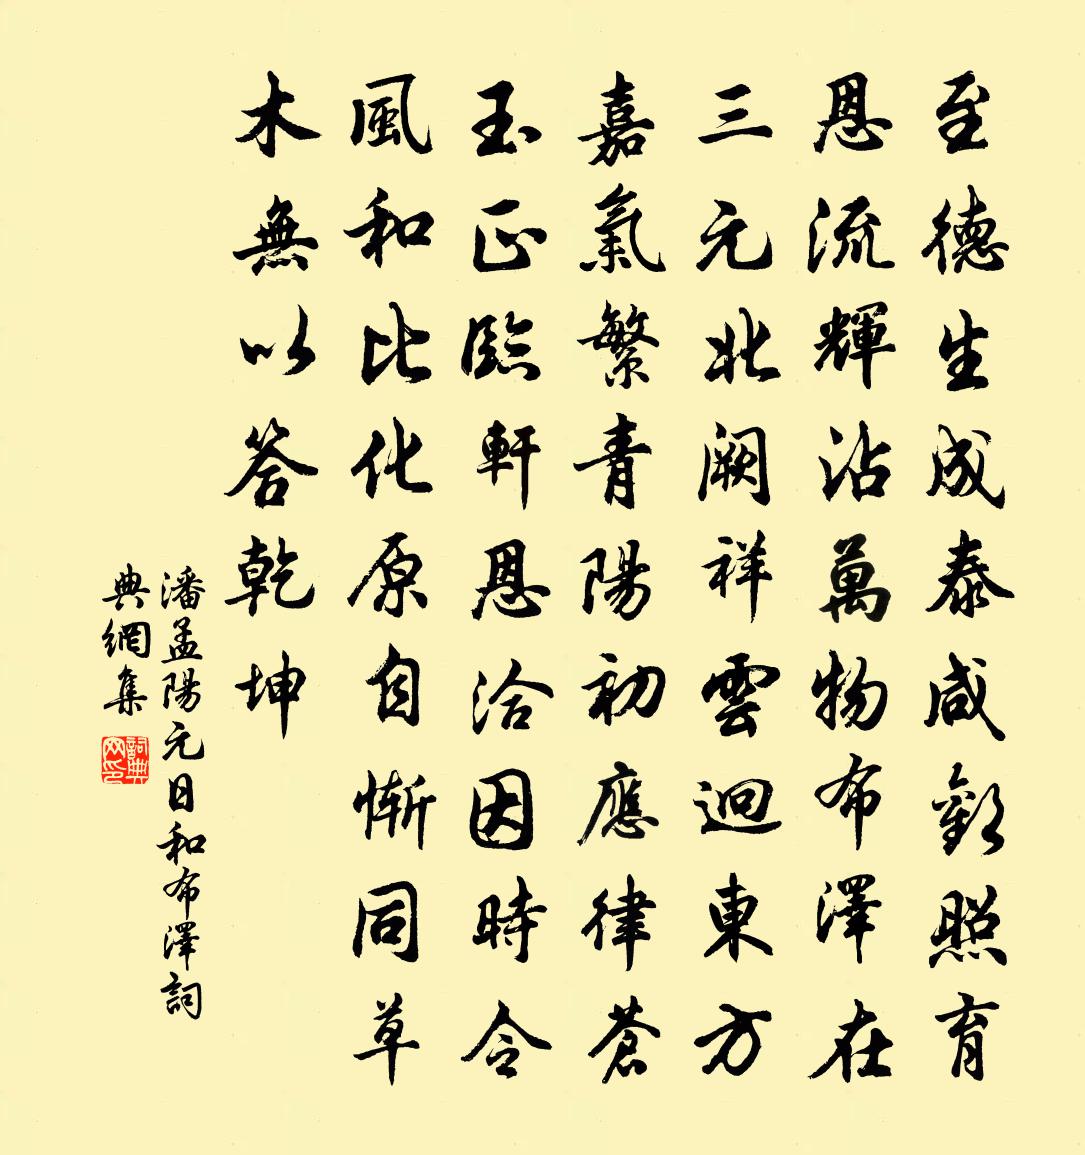 至德生成泰咸歡照育
恩流輝沾萬物布澤在
三元北闕祥雲迥東方
嘉氣繁青陽初應律蒼
玉正臨軒恩洽因時令
風和比化原自慚同草
木無以答乾坤
潘孟陽元日和布澤詞
典網集
詞典网印